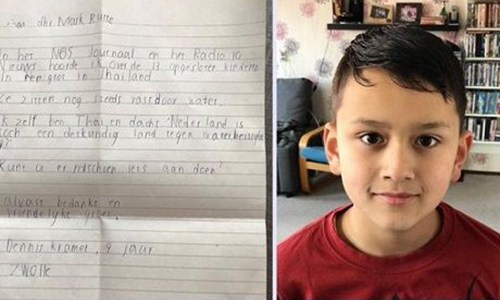 Aan dhr Mark Rutte
In het NOS Journaal en het Radio 10
Nieuws hoorde ik over de 13 opgesloten kinderen
In een grot in Thailand
Ze zitten nog steeds vast door water.
Ik zelf ben Thai en dacht Nederland is
toch een deskundig land tegen
Kunt u er misschien iets aan doen!
alvast bedankt en
vriendelijke groet.
Dennis Kramer, 9 jaar
Zwolle